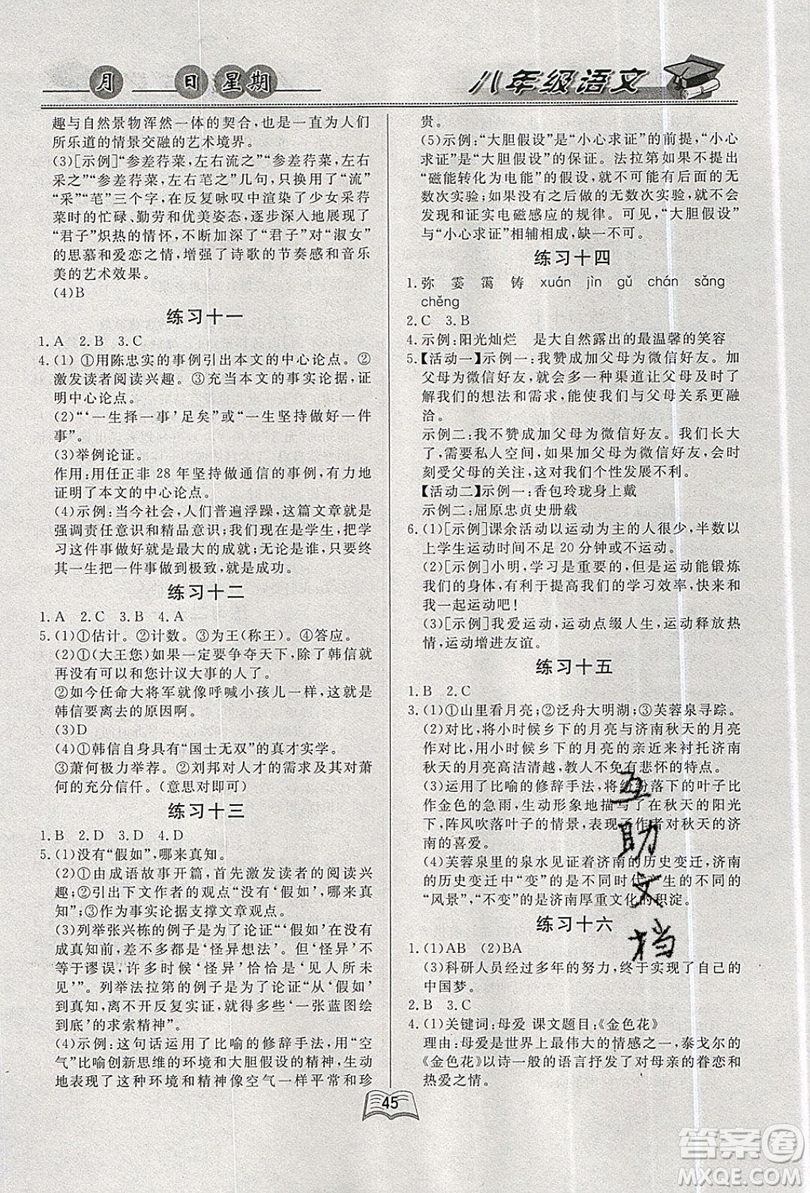 月 日 星期
八年级语文
趣与自然景物浑然一体的契合，也是一直为人们
所乐道的情景交融的艺术境界。
(3)[示例]“参差荇菜，左右流之”“参差荇菜，左右
采之”“参差荇菜，左右芼之”几句，只改动了“流”
“采”“芼”三字，在反复咏叹中渲染了少女采荇
菜时的忙碌、勤劳和优美姿态，突出表现了
“君子”炽热的情怀，不断深化了“君子”对“淑女”
的思慕和爱恋之情，增强了诗歌的节奏感和音乐
美的艺术效果。
(4)B
练习十一
1.A 2.B 3.C
4.(1)①用陈忠实的事例引出本文的中心论点。②
激发读者阅读兴趣。③充当本文的事实论据，证
明中心论点。
(2)“‘一生择一事’足矣”或“一生坚持做好一件
事”。
(3)举例论证。
作用：用任正非 28 年坚持做通信的事例，有力地
证明了本文的中心论点。
(4)示例：当今社会，人们普遍浮躁，这篇文章就是
强调责任意识和精品意识；我们现在是学生，把学
习这件事做好就是最大的成就；无论是谁，只要终
其一生，把一件事做到极致，就是成功。
练习十二
1.A 2.C 3.B 4.A
5.(1)①估计。②计数。③为王(称王)。④答应。
(2)①(大王您)如果一定要争夺天下，除了韩信，
就没有可以和您计议大事的人了。
②如今任命大将军就像呼喊小孩儿一样，这就是
韩信要离去的原因啊。
(3)D
(4)①韩信自身具有“国士无双”的真才实学。
②萧何极力举荐。③刘邦对人才的需求及其对萧
何的充分信任。(意思对即可)
练习十三
1.B 2.D 3.D 4.D
5.(1)没有“假如”，哪来真知。
(2)①由成语故事开篇，首先激发读者的阅读兴
趣；②引出下文作者的观点“没有‘假如’，哪来真
知”；③作为事实论据支撑文章观点。
(3)列举张兴栋的例子是为了论证“‘假如’在没有
成为现实之前，多半都是‘怪异想法’。但‘怪异’不
等于谬误，有时候，‘怪异’恰恰是‘见人所未
见’”。列举华罗庚的例子是为了论证“从‘假如’到
现实，离不开反复实证，就像‘一张蓝图绘到底’
的求索精神”。
(4)示例：这句话运用了比喻的修辞手法，用“空
气”比喻创新思维的环境和大胆假设的精神，生动
地写出了这种环境和精神就像空气一样平常和珍
贵。
(5)示例：“大胆假设”是“小心求证”的前提，“小心
求证”是“大胆假设”的保证。法拉第如果不提出
“磁能转化为电能”的假设，就不可能有后面的无
数次实验；如果没有之后做的无数次实验，就不会
发现和证实电磁感应的规律。可见，“大胆假设”
与“小心求证”相辅相成，缺一不可。
练习十四
1.弥 霎 霭 铸 xuán jìn gǔ chán sǎng
chěng
2.C 3.B
4.示例：阳光灿烂 是大自然露出的最温馨的笑容
5.【活动一】示例一：我赞成加父母为微信好友。加
父母为微信好友，能够多一种渠道让父母及时了
解我们的想法和需求，能使我们与父母关系更融
洽。
示例二：我不赞成加父母为微信好友。我们长大
了，需要私人空间，如果加父母为微信好友，会时
时刻刻受父母的关注，不利于我们的个性发展。
【活动二】示例一：香包玲珑身上戴
示例二：屈原忠贞史册载
6.(1)[示例]课余活动以运动为主的人很少，半数以
上学生运动时间不足 20 分钟或不运动。
(2)[示例]小明，学习是重要，但是运动能锻炼
我们的身体，有利于提高我们的学习效率，快来和
我们一起运动吧！
(3)[示例]我爱运动，运动点缀人生，运动释放热
情，运动增进友谊。
练习十五
1.B 2.C
3.(1)①山里看月亮；②泛舟大明湖；③芙蓉泉寻踪。
(2)对比，将小时候乡下的月亮与济南秋天的月亮
作对比，写出了小时候乡下的月亮的亲近来衬托济南
秋天的月亮高洁清幽，教人不免有悲伤的特点。
(3)运用了比喻的修辞手法，将纷纷落下的叶子比
作金色的急雨，生动形象地描写了在秋天的阳光
下，阵风吹落叶子的情景，表现了作者对秋天的济南
的喜爱。
(4)芙蓉泉里的泉水见证着济南的历史变迁，济南
的历史变迁中“变”的是代代传承的文人、一年年的
“风景”，“不变”的是济南厚重文化的积淀。
练习十六
1.(1)AB (2)BA
(3)科研人员通过自己的努力，终于实现了自己的
中国梦。
2.B 3.C
4.(1)关键词：母爱 课文题目：《金色花》
理由：母爱是世界上最伟大的情感，泰戈尔的
《金色花》以诗一般的语言抒发了对母亲的眷恋和
热爱之情。
45
互助文档
答案圈
MXQE.COM